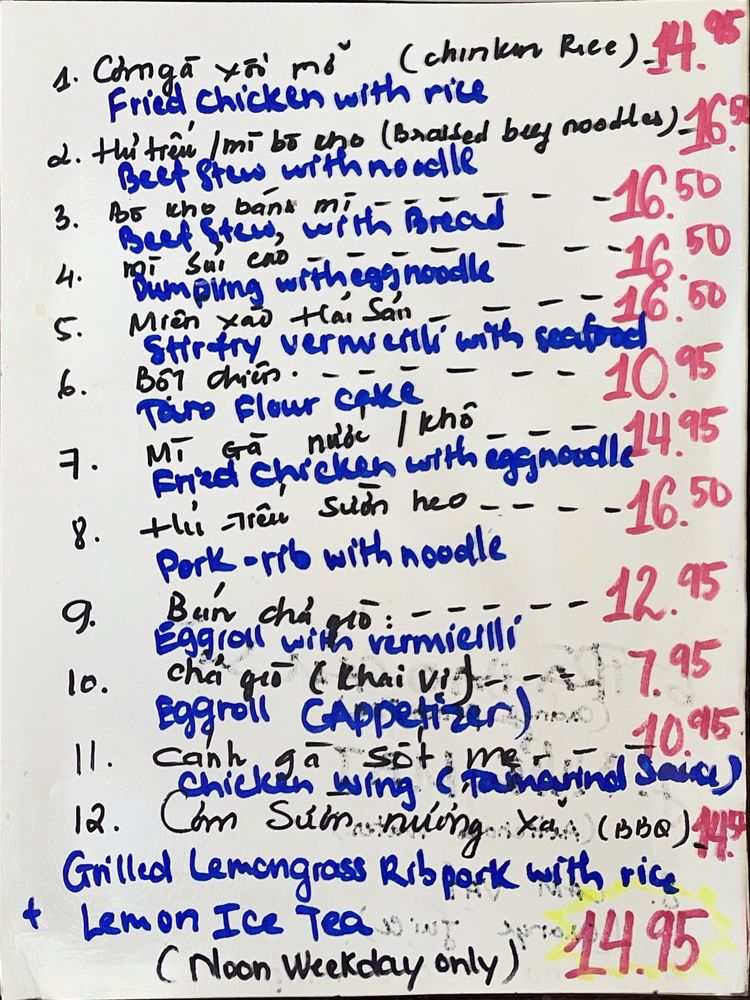 1. Cơm gà xối mỡ (chinken Rice) 14.95
Fried Chicken with rice
2. Hủ tiếu / mì bò kho (Braised beef noodles) 16.50
Beef Stew with noodle
3. Bò kho bánh mì - - - - - - 16.50
Beef Stew, with Bread
4. mì Sủi cảo - - - - - - 16.50
Dumping with egg noodle
5. Miến xào Hải Sản - - - - 16.50
Stir-fry vermicilli with seafood
6. Bột chiên. - - - - - - 10.95
Taro Flour cake
7. Mì Gà nước / khô - - - 14.95
Fried Chicken with egg noodle
8. Hủ Tiếu Sườn heo - - - - 16.50
Pork-rib with noodle
9. Bún chả giò: - - - - - - 12.95
Eggroll with vermicilli
10. chả giò (khai vị) - - - 7.95
Eggroll (Appetizer)
11. cánh gà sốt me - - - 10.95
Chicken wing (Tamarind Sauce)
12. Cơm Sườn nướng xả (BBQ)
Grilled Lemongrass Rib pork with rice
+ Lemon Ice Tea
(Noon Weekday only) 14.95